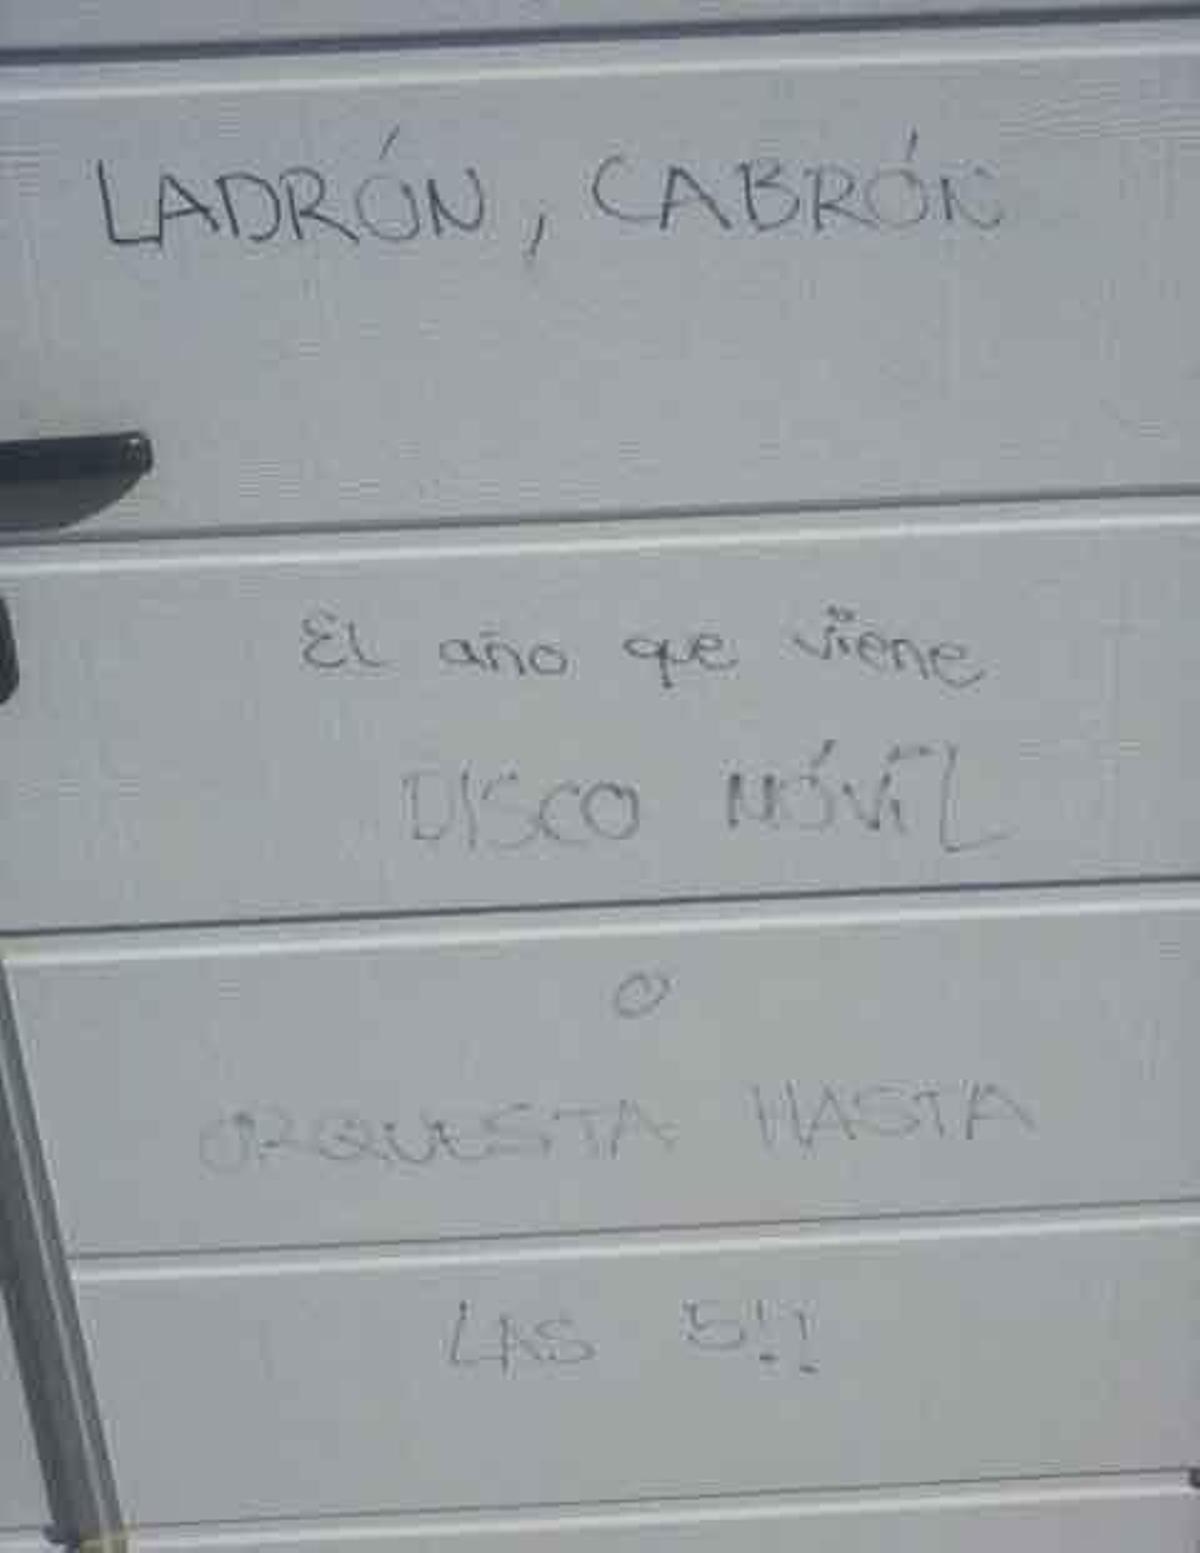 LADRÓN, CABRÓN
El año que viene
DISCO MÓVIL
O
ORQUESTA HASTA
LAS 5!!